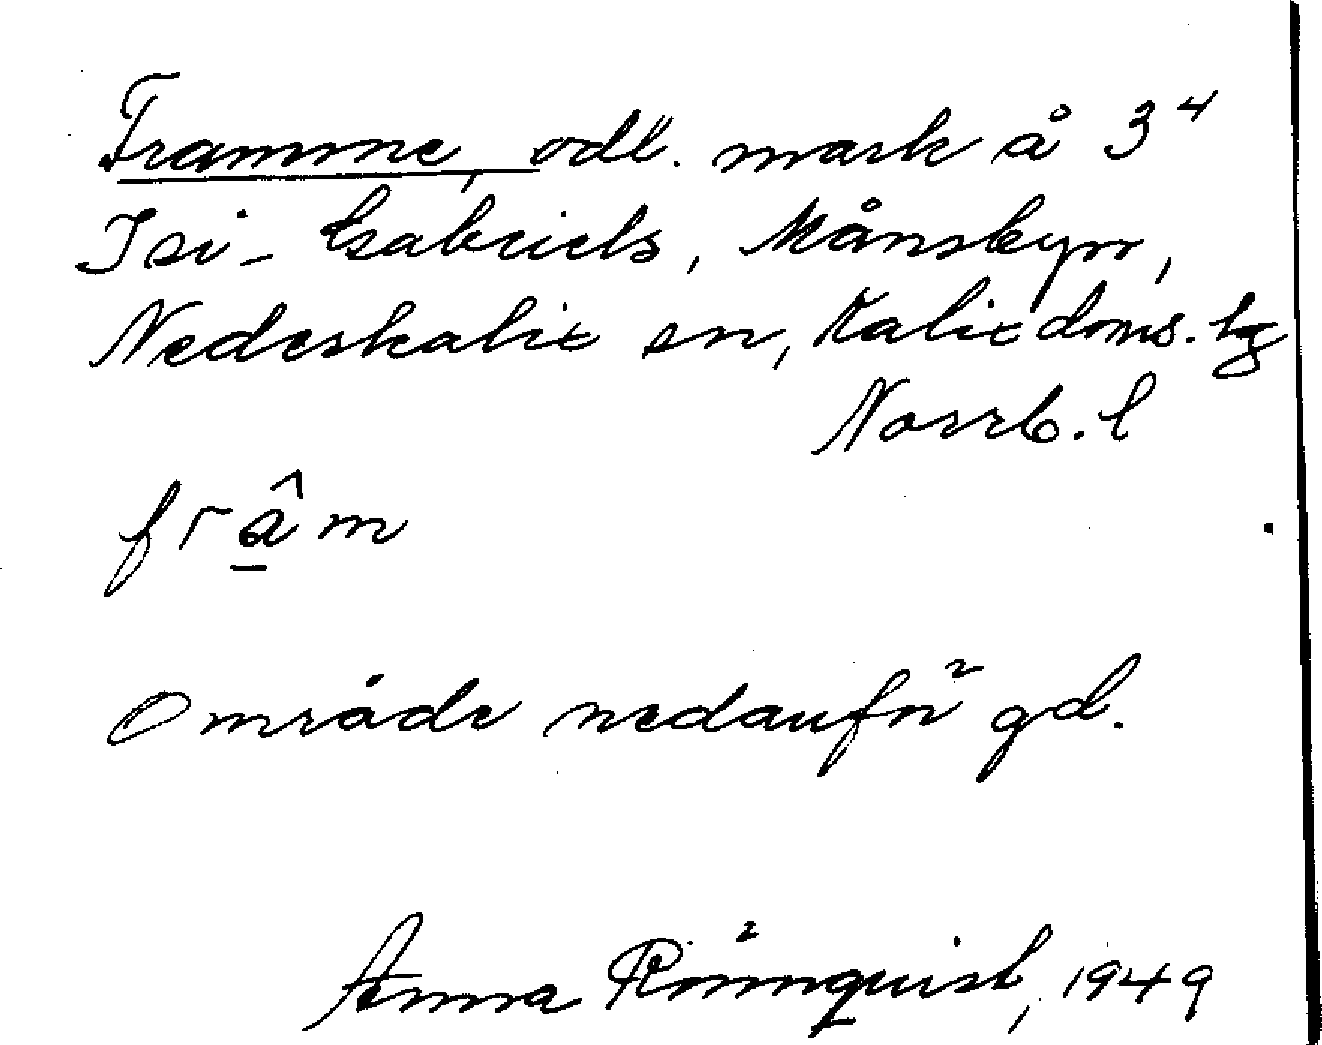 Framme, odl. mark å 3⁴
Isi-Gabriels, Månsbyn,
Nederkalix sn, Kalix doms. lg
Norrb. l
frâm
Område nedanför gd.
Anna Rönnquist, 1949